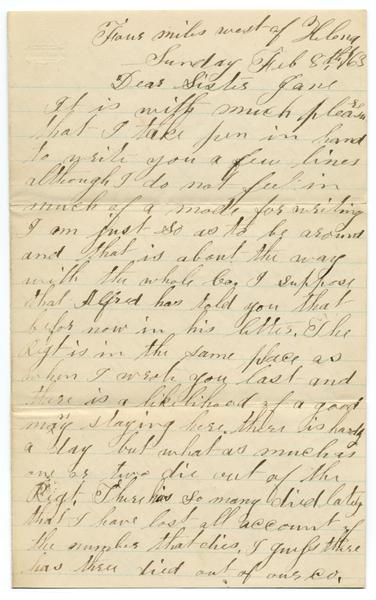 Four miles west of Helena
Sunday Feb 8th /63
Dear Sister Jane
It is with much pleasure
that I take pen in hand
to write you a few lines
although I do not feel in
much of a mode for writing
I am just so as to be around
and that is about the way
with the whole Co, I suppose
that Alfred has told you that
before now in his letter. The
Regt is in the same place as
when I wrote you last and
there is a likelihood of a good
may staying here there is hardly
a day but what as much as
one or two die out of the
Regt. There has so many died lately
that I have lost all account of
the number that dies, I guess there
has three died out of our co.